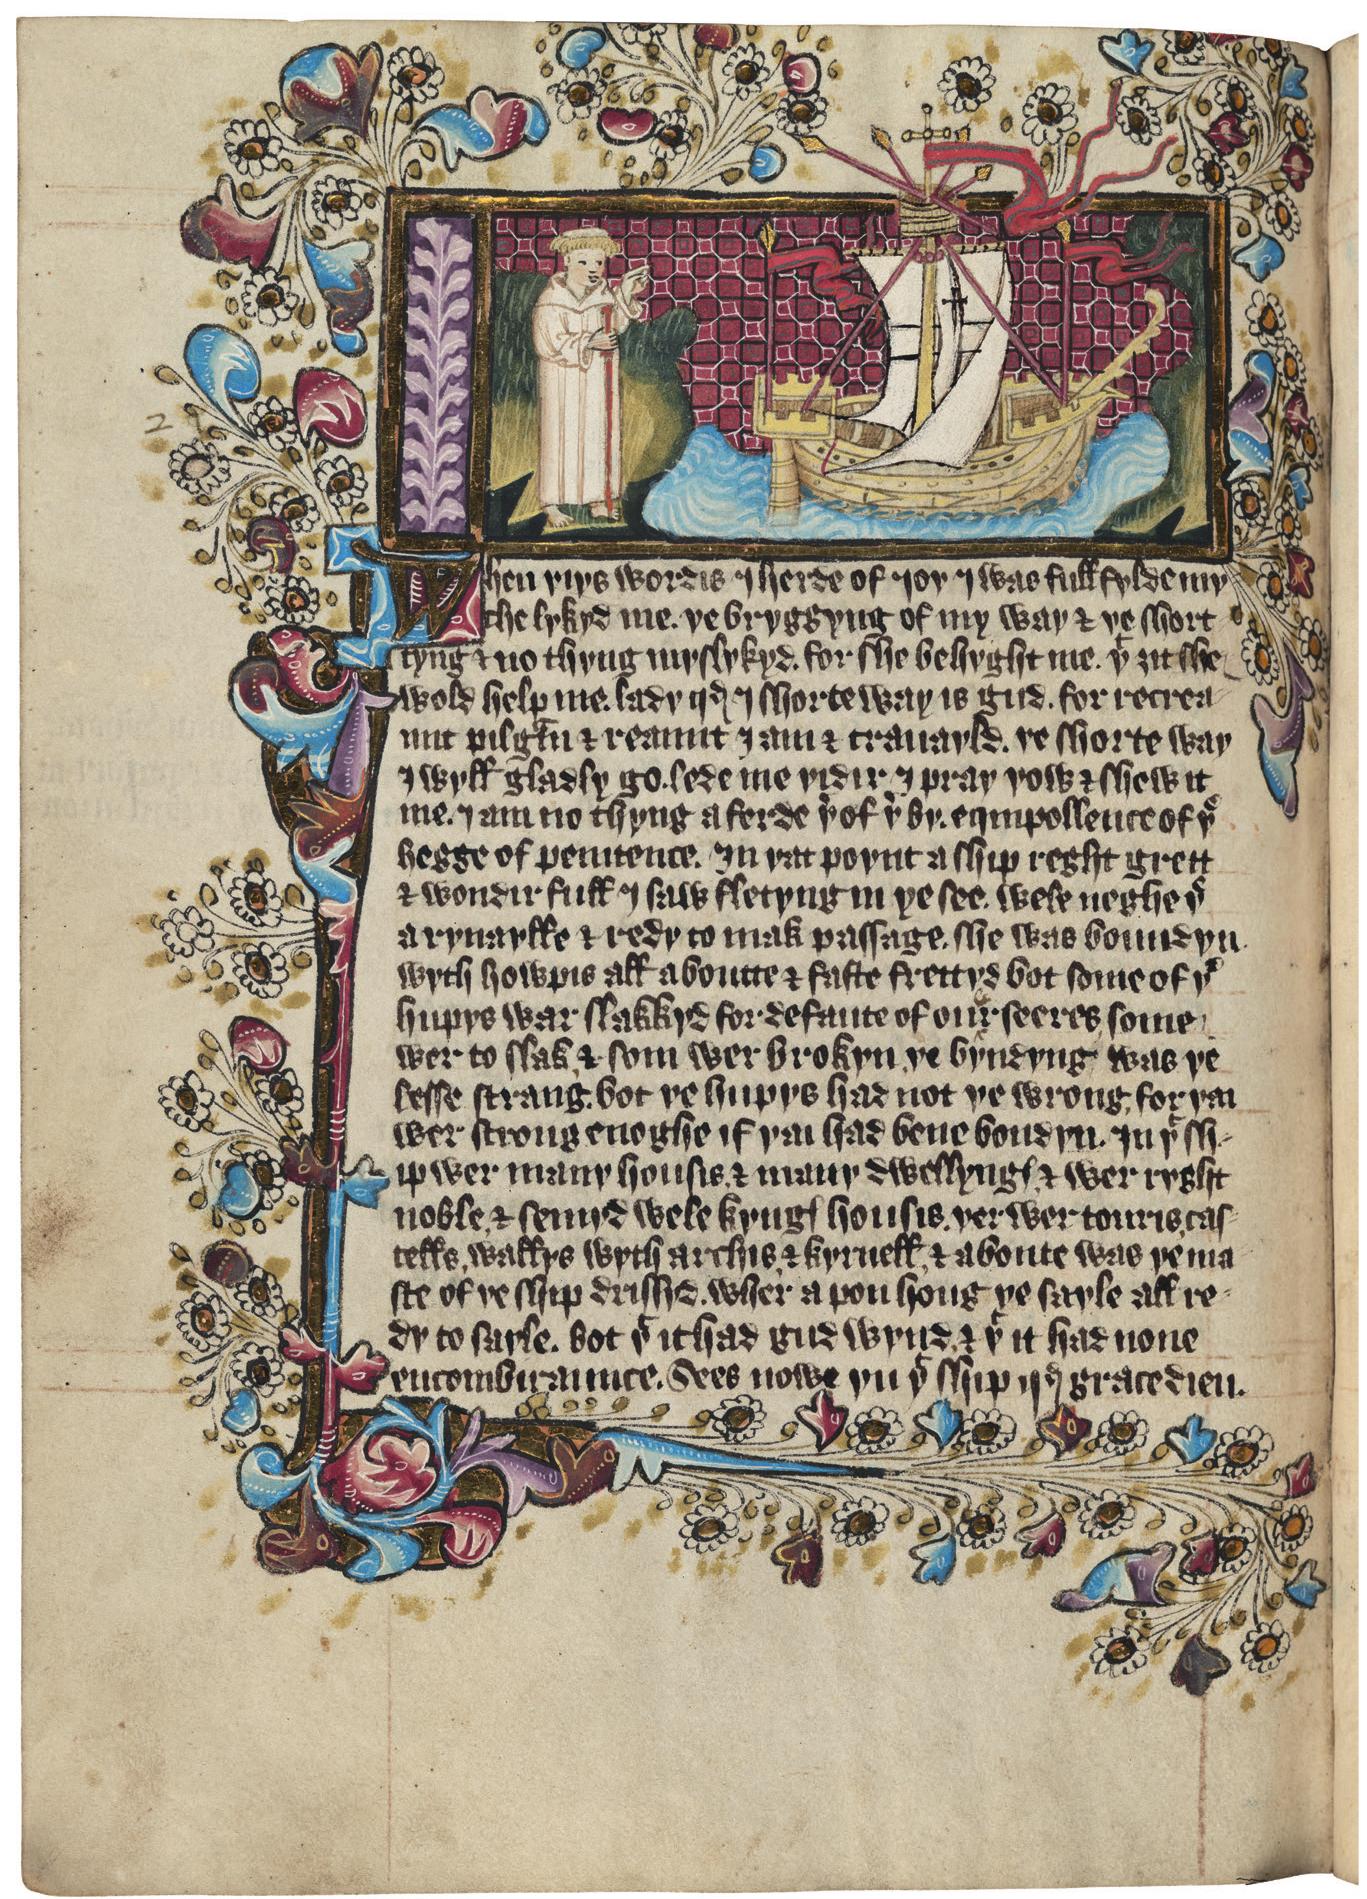 When yiys wordis I herde of Ioy I was full fylde my
the lykyd me. ye bryggyng of my way & ye short
tyng & no thyng myslykyd. for she behyght me. yͭ zit she
wold help me. lady qd I shorte way is gud. for recrea
unt pilgͥm & reaunt I am & trauayld. ye shorte way
I wyll gladly go. lede me yidir I pray yow & shew it
me. I am no thyng aferde yͬ of yͭ by. equipollence of yͤ
hegge of penitence. In yat poynt a ship reght grett
& wondir full I saw fletyng in ye see. wele neghe yͤ
aryuaylle & redy to mak passage. she was boundyn
wyth howpis all aboutte & faste frettyd bot some of yͤ
hupys war slakkyd for defaute of our seeres, some
wer to slak, & som wer brokyn. ye byndyng was ye
lesse strang. bot ye hupys had not ye wrong, for yai
wer strong enoghe if yai had bene boundyn. In yͭ sh-
ip wer many housis, & many dwellyngꝭ, & wer ryght
noble, & semyd wele kyngꝭ housis. yer wer touris, cas-
tells, wallys wyth archis, & kyrnell, & aboute was ye ma
ste of ye ship drissyd. wher apon houg ye sayle all re-
dy to sayle. bot yͭ it had gud wynd, & yͭ it had none
encomburaunce. Sees nowe yu yͭ ship qd grace dieu.
2